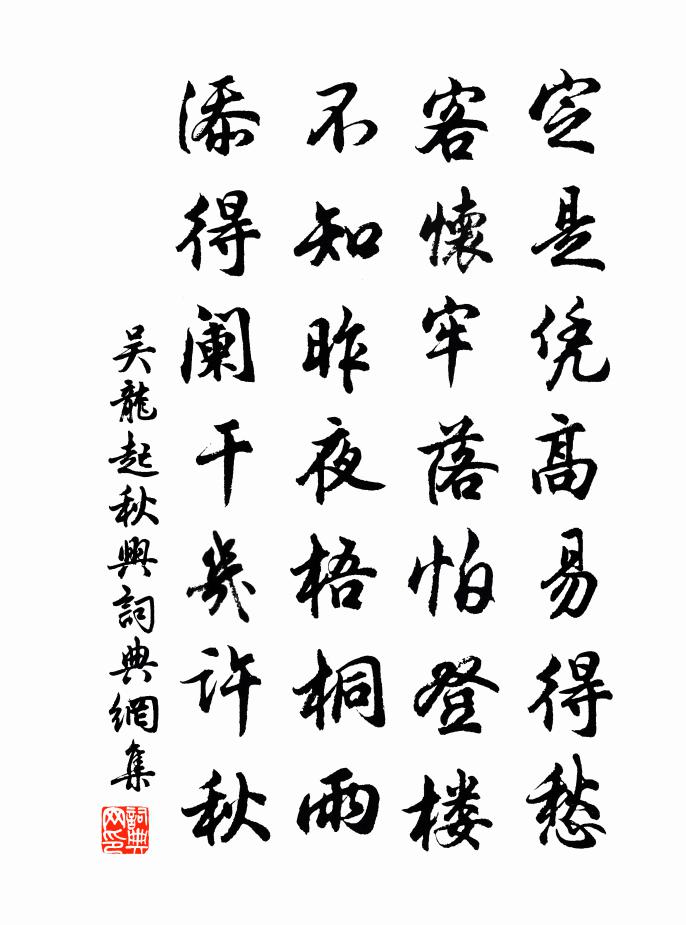 定是凭高易得愁
客懷牢落怕登楼
不知昨夜梧桐雨
添得阑干幾許秋
吴龍起秋興詞典網集
詞典
网印